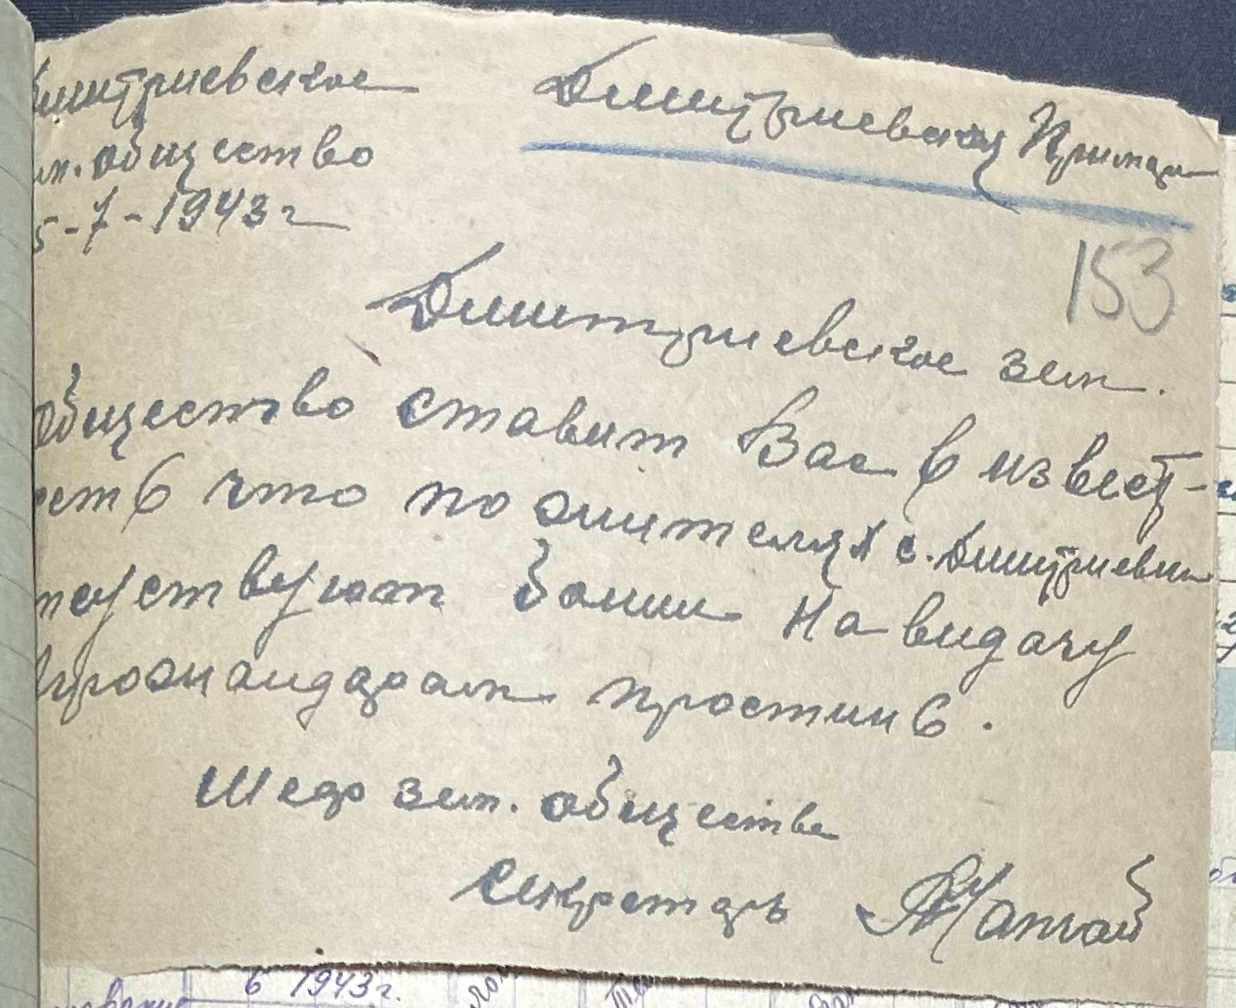 Дмитриевское
общество
5-7-1943 г
Дмитриевская Примар
153
Дмитриевское зем.
общество ставит Вас в извест-
ость что по жителях с. Дмитриевки
ствуют боны на видачу
гражандрам простинь.
Шеф зем. общества
Секретарь
6 1943 г.